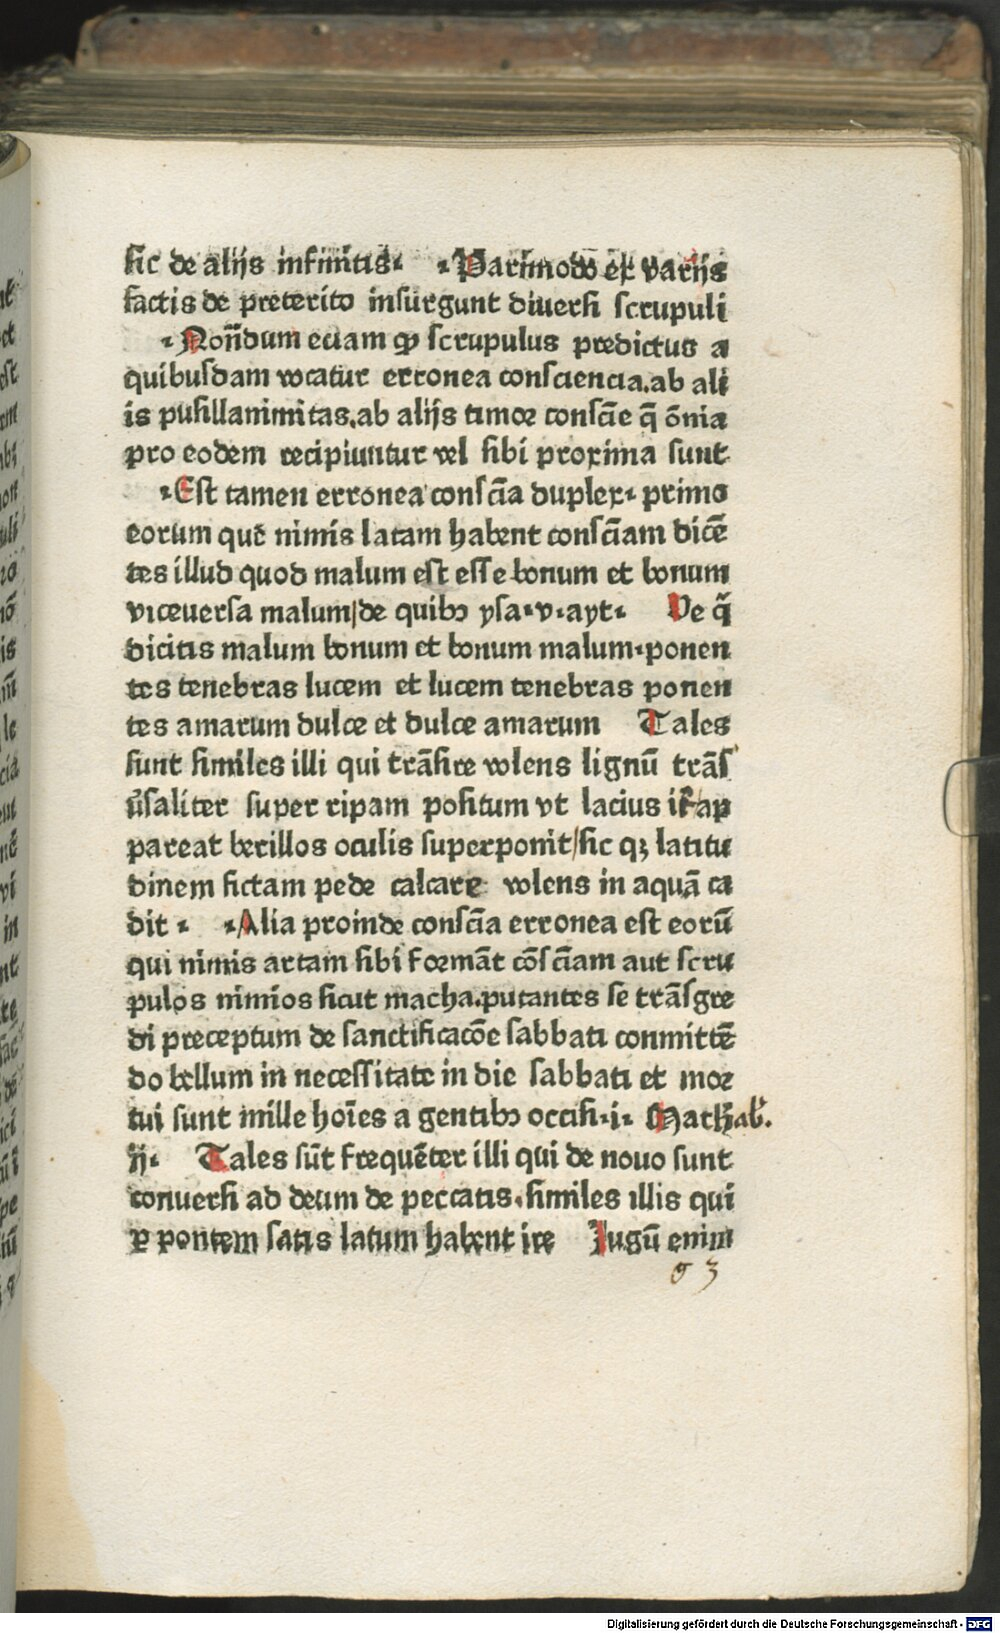 sic de alijs infinitis. .Parimodo ex varijs
factis de preterito insurgunt diuersi scrupuli
.Nonñdum eciam ꝙ scrupulus predictus a
quibusdam vocatur erronea consciencia.ab ali
is pusillanimitas.ab alijs timor consc̄ie q̄ ōnia
pro eodem recipiuntur vel sibi proxima sunt
.Est tamen erronea consc̄ia duplex. primo
eorum quē nimis latam habent consc̄iam dicē
tes illud quod malum est esse bonum et bonum
viceuersa malum/de quibꝯ ysa.v.ayt. Ve q̄
dicitis malum bonum et bonum malum.ponen
tes tenebras lucem et lucem tenebras ponen
tes amarum dulce et dulce amarum Tales
sunt similes illi qui trāsire volens lignū trās
ūsaliter super ripam positum vt lacius ap
pareat berillos oculis superponit/sic qꝫ latitu
dinem fictam pede calcare volens in aquā ca
dit . .Alia proinde consc̄ia erronea est eorū
qui nimis artam sibi formāt cōsc̄iam aut scru
pulos nimios sicut macha.putantes se trāsgre
di preceptum de sanctificacōe sabbati conmittē
do bellum in necessitate in die sabbati et mor
tui sunt mille hoīes a gentibꝯ occisi.i. Machab.
ij. Tales sūt frequēter illi qui de nouo sunt
conuersi ad deum de peccatis.similes illis qui
ꝑ pontem satis latum habent ire Jugū enim
93
Digitalisierung gefördert durch die Deutsche Forschungsgemeinschaft - DFG